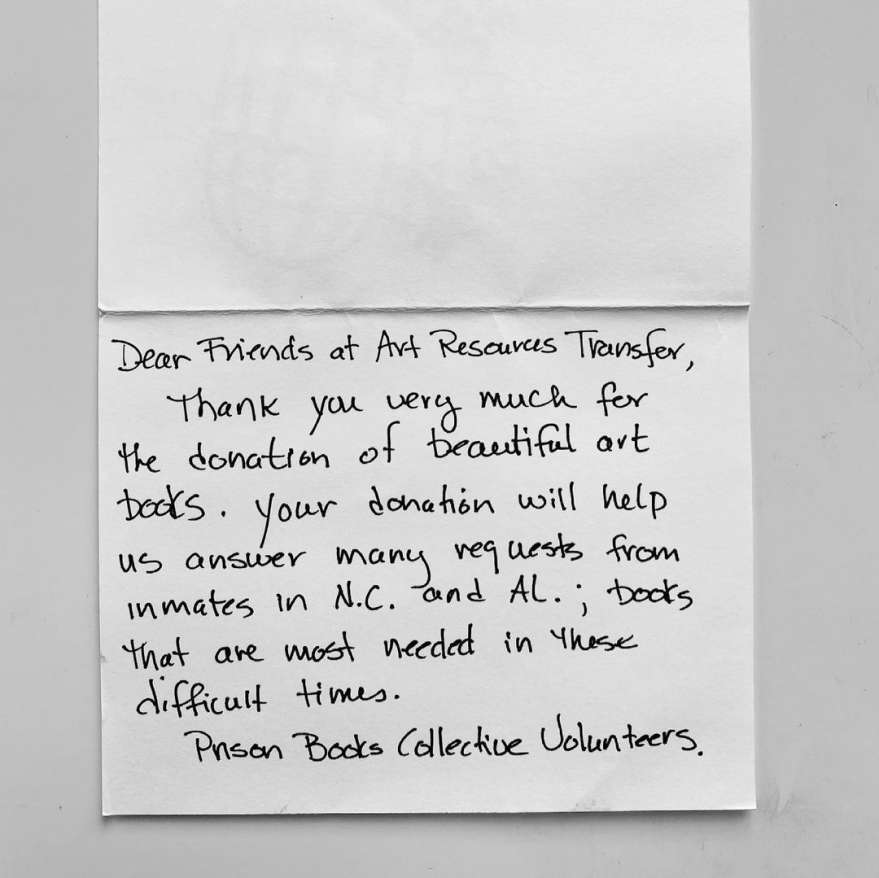 Dear Friends at Art Resources Transfer,
Thank you very much for
the donation of beautiful art
books. Your donation will help
us answer many requests from
inmates in N.C. and AL.; books
that are most needed in these
difficult times.
Prison Books Collective Volunteers.